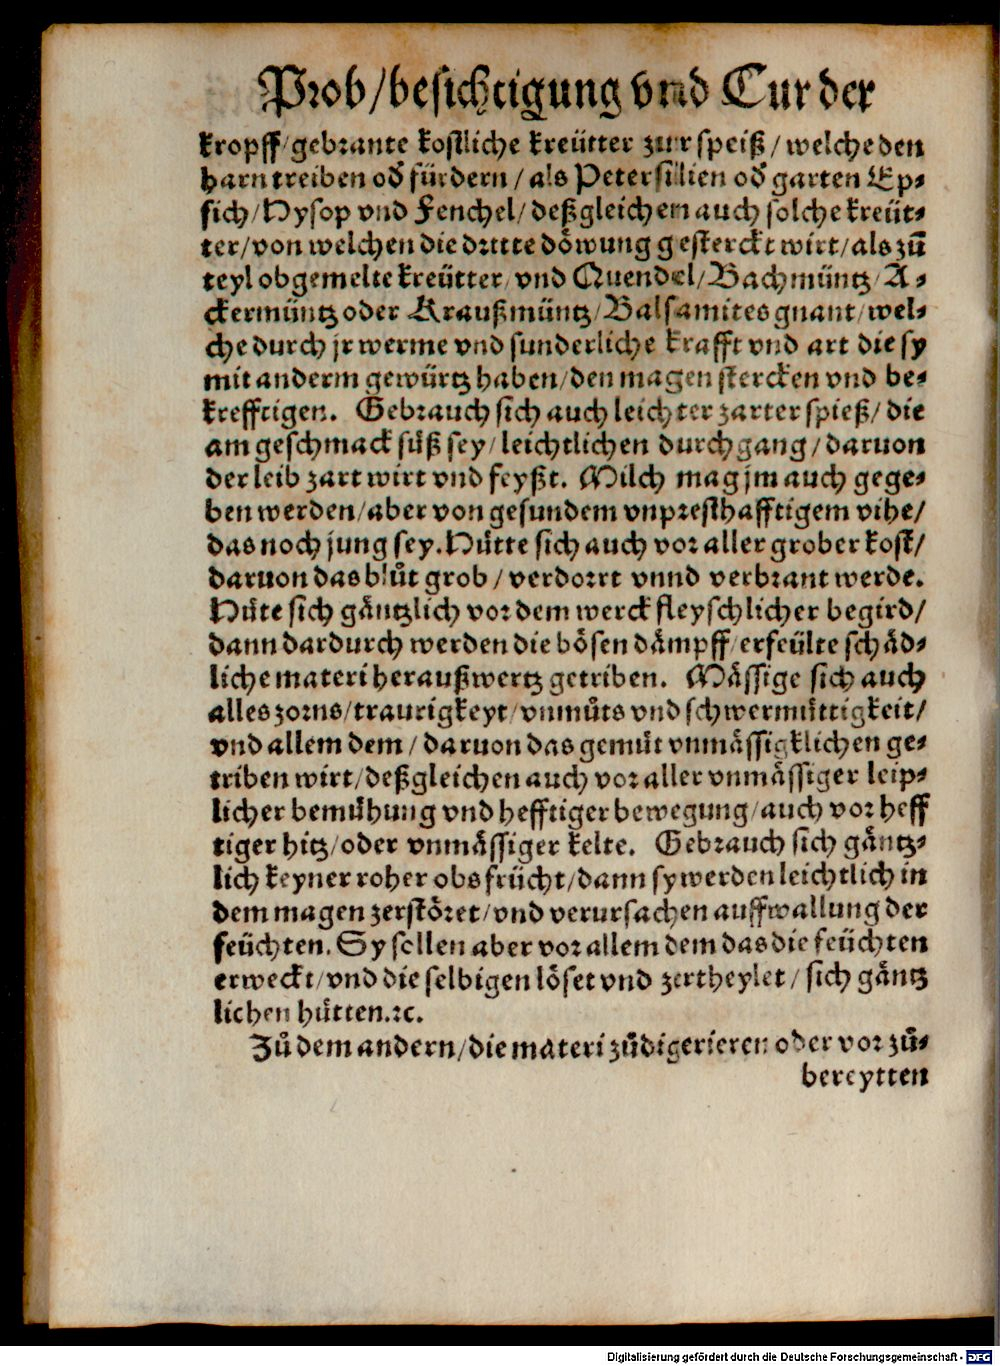 Prob/besichtigung vnd Cur der
kropff/gebrante kostliche kreütter zur speiß/welche den
harn treiben od̕ fürdern/als Petersilien od̕ garten Ep⸗
sich/Hysop vnd Fenchel/deßgleichen auch solche kreüt⸗
ter/von welchen die dritte döwung gesterckt wirt/als zů
teyl obgemelte kreütter/vnd Quendel/Bachmüntz/A⸗
ckermüntz oder Kraußmüntz/Balsamites gnant/wel⸗
che durch jr werme vnd sunderliche krafft vnd art die sy
mit anderm gewürtz haben/den magen stercken vnd be⸗
krefftigen. Gebrauch sich auch leichter zarter spieß/die
am geschmack süß sey/leichtlichen durchgang/daruon
der leib zart wirt vnd feyßt. Milch mag jm auch gege⸗
ben werden/aber von gesundem vnpresthafftigem vihe/
das noch jung sey. Hütte sich auch vor aller grober kost/
daruon das blůt grob/verdorrt vnnd verbrant werde.
Hüte sich gäntzlich vor dem werck fleyschlicher begird/
dann dardurch werden die bösen dämpff/erfeülte schäd⸗
liche materi heraußwertz getriben. Mässige sich auch
alles zorns/traurigkeyt/vnmůts vnd schwermüttigkeit/
vnd allem dem/daruon das gemüt vnmässigklichen ge⸗
triben wirt/deßgleichen auch vor aller vnmässiger leip⸗
licher bemühung vnd hefftiger bewegung/auch vor heff
tiger hitz/oder vnmässiger kelte. Gebrauch sich gäntz⸗
lich keyner roher obs frücht/dann sy werden leichtlich in
dem magen zerstöret/vnd verursachen auffwallung der
feüchten. Sy sellen aber vor allem dem das die feüchten
erweckt/vnd die selbigen löset vnd zertheylet/sich gäntz
lichen hütten.ꝛc.
Zů dem andern/die materi zů digerieren oder vor zů⸗
bereytten
Digitalisierung gefördert durch die Deutsche Forschungsgemeinschaft - DFG